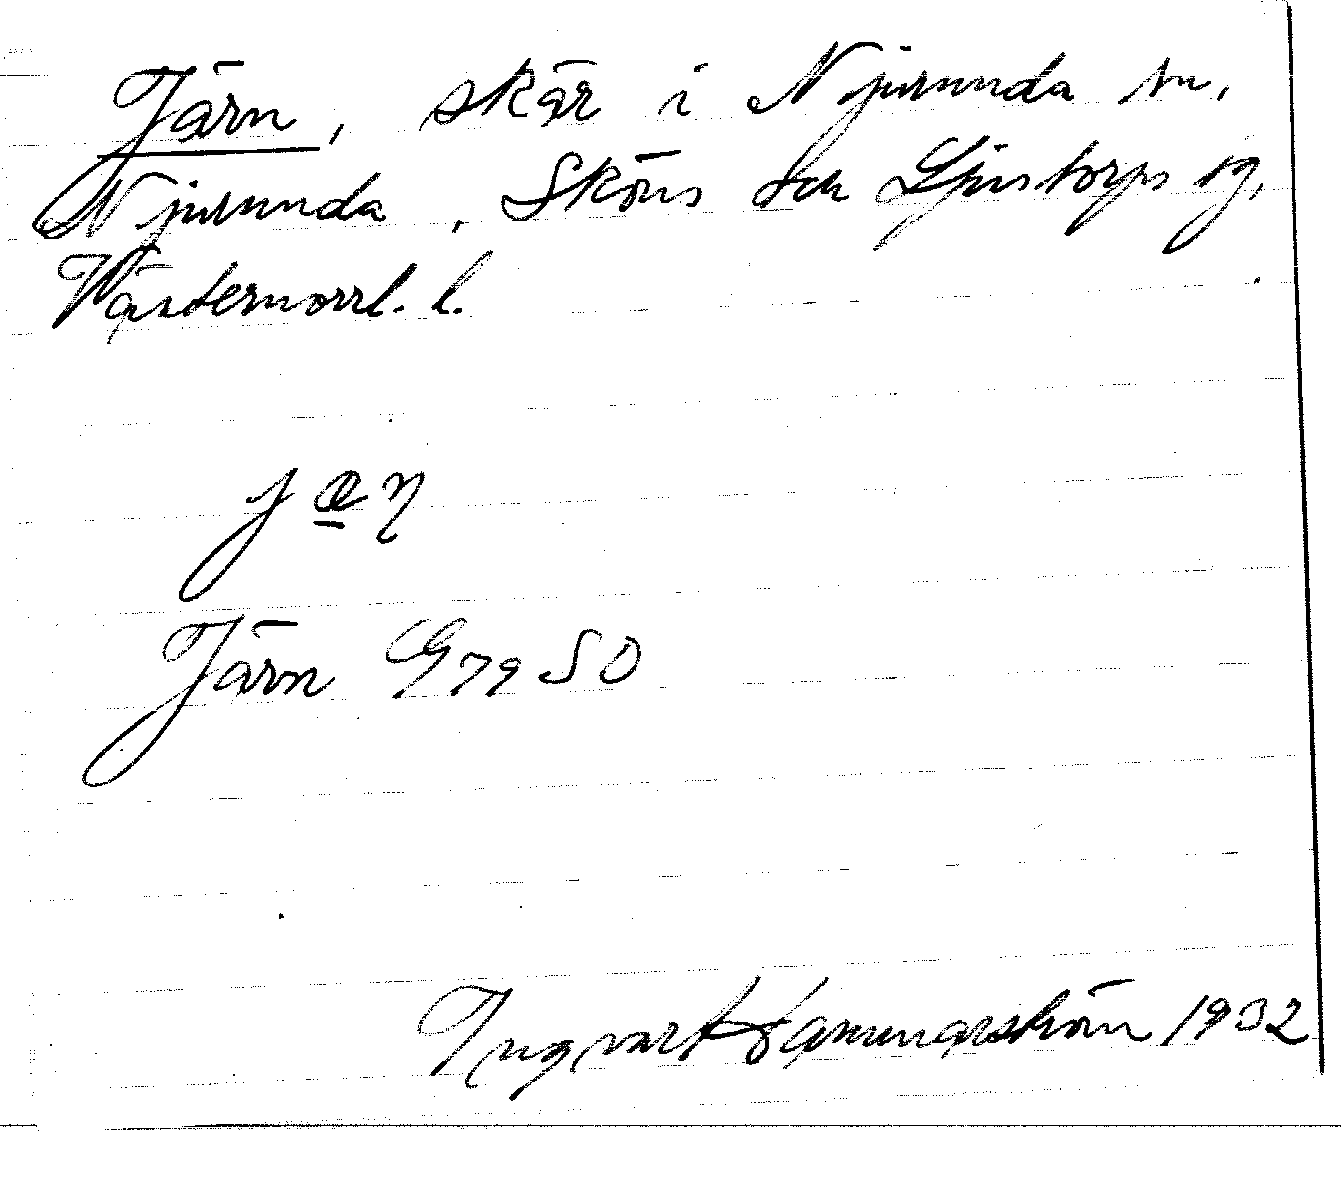 Järn, skär i Njurunda sn,
Njurunda, Sköns och Ljustorps tg,
Västernorrl. l.
jæ̲ɳ
Järn G79SO
Ingvar Hammarström 1932